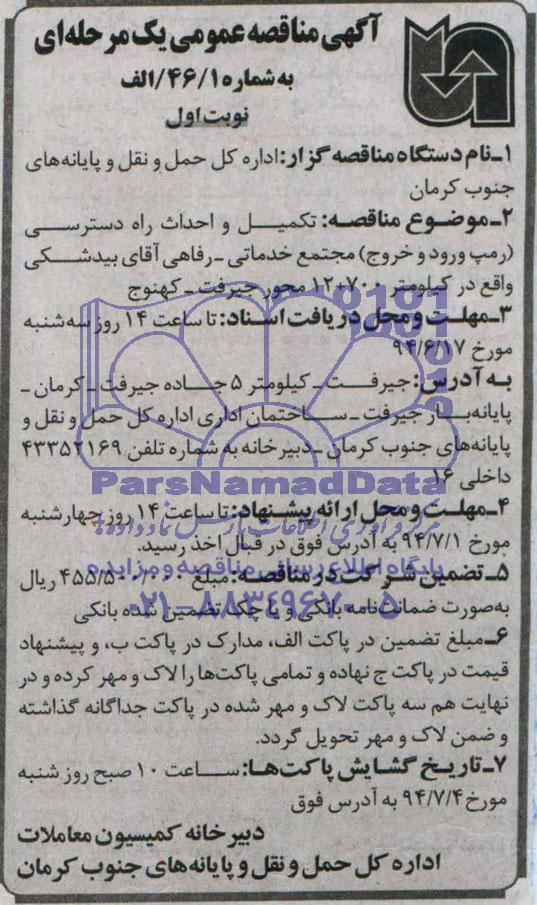 آگهی مناقصه عمومی یک مرحله‌ای
به شماره ۴۶/۱/الف
نوبت اول
۱ـ نام دستگاه مناقصه گزار: اداره کل حمل و نقل و پایانه‌های
جنوب کرمان
۲ـ موضوع مناقصه: تکمیل و احداث راه دسترسی
(رمپ ورود و خروج) مجتمع خدماتی ـ رفاهی آقای بیدشکی
واقع در کیلومتر ۷۰۰+۱۲ محور جیرفت ـ کهنوج
۳ـ مهلت و محل دریافت اسناد: تا ساعت ۱۴ روز سه‌شنبه
مورخ ۹۴/۶/۱۷
به آدرس: جیرفت ـ کیلومتر ۵ جاده جیرفت ـ کرمان ـ
پایانه بار جیرفت ـ ساختمان اداری اداره کل حمل و نقل و
پایانه‌های جنوب کرمان ـ دبیرخانه به شماره تلفن ۴۳۳۵۲۱۶۹
داخلی ۱۶
ParsNamadData
۴ـ مهلت و محل ارائه پیشنهاد: تا ساعت ۱۴ روز چهارشنبه
مورخ ۹۴/۷/۱ به آدرس فوق در قبال اخذ رسید.
پایگاه اطلاع رسانی مناقصه و مزایده
۵ـ تضمین شرکت در مناقصه: مبلغ ۴۵۵/۵۰۰/۰۰۰ ریال
به‌صورت ضمانت‌نامه بانکی و یا چک تضمین شده بانکی
۰۲۱-۸۸۳۴۹۶۷۰-۵
۶ـ مبلغ تضمین در پاکت الف، مدارک در پاکت ب، و پیشنهاد
قیمت در پاکت ج نهاده و تمامی پاکت‌ها را لاک و مهر کرده و در
نهایت هم سه پاکت لاک و مهر شده در پاکت جداگانه گذاشته
و ضمن لاک و مهر تحویل گردد.
۷ـ تاریخ گشایش پاکت‌ها: ساعت ۱۰ صبح روز شنبه
مورخ ۹۴/۷/۴ به آدرس فوق
دبیرخانه کمیسیون معاملات
اداره کل حمل و نقل و پایانه‌های جنوب کرمان